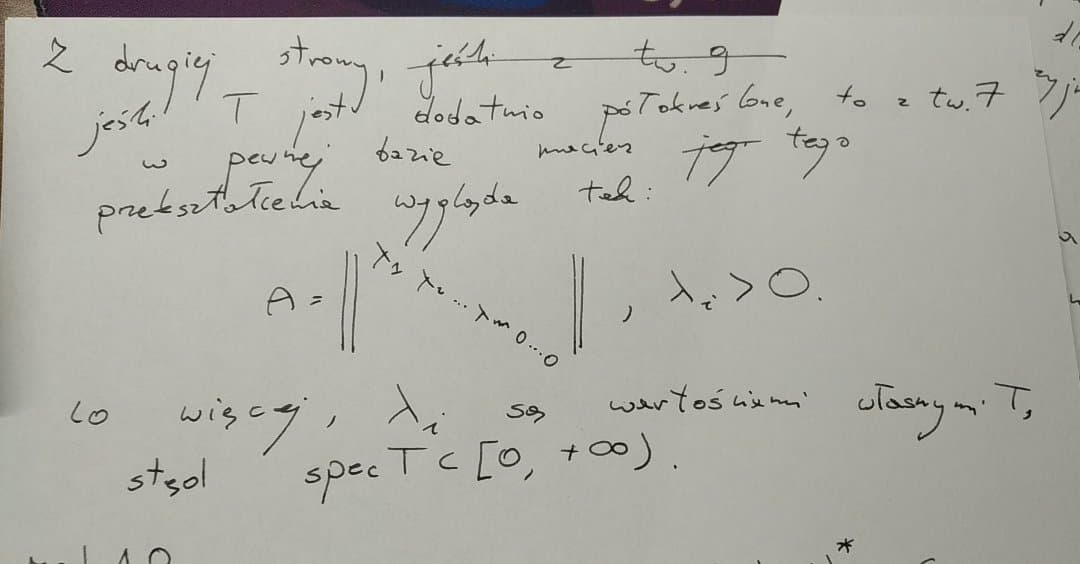 Z drugiej strony, jeśli z tw. 9
jeśli T jest dodatnio półokreślone, to z tw. 7
w pewnej bazie macierz jego tego
przekształcenia wygląda tak:
A = || λ₁ λ₂ ... λₘ 0...0 || , λᵢ > 0.
Co więcej, λᵢ są wartościami własnymi T,
stąd spec T ⊂ [0, +∞).